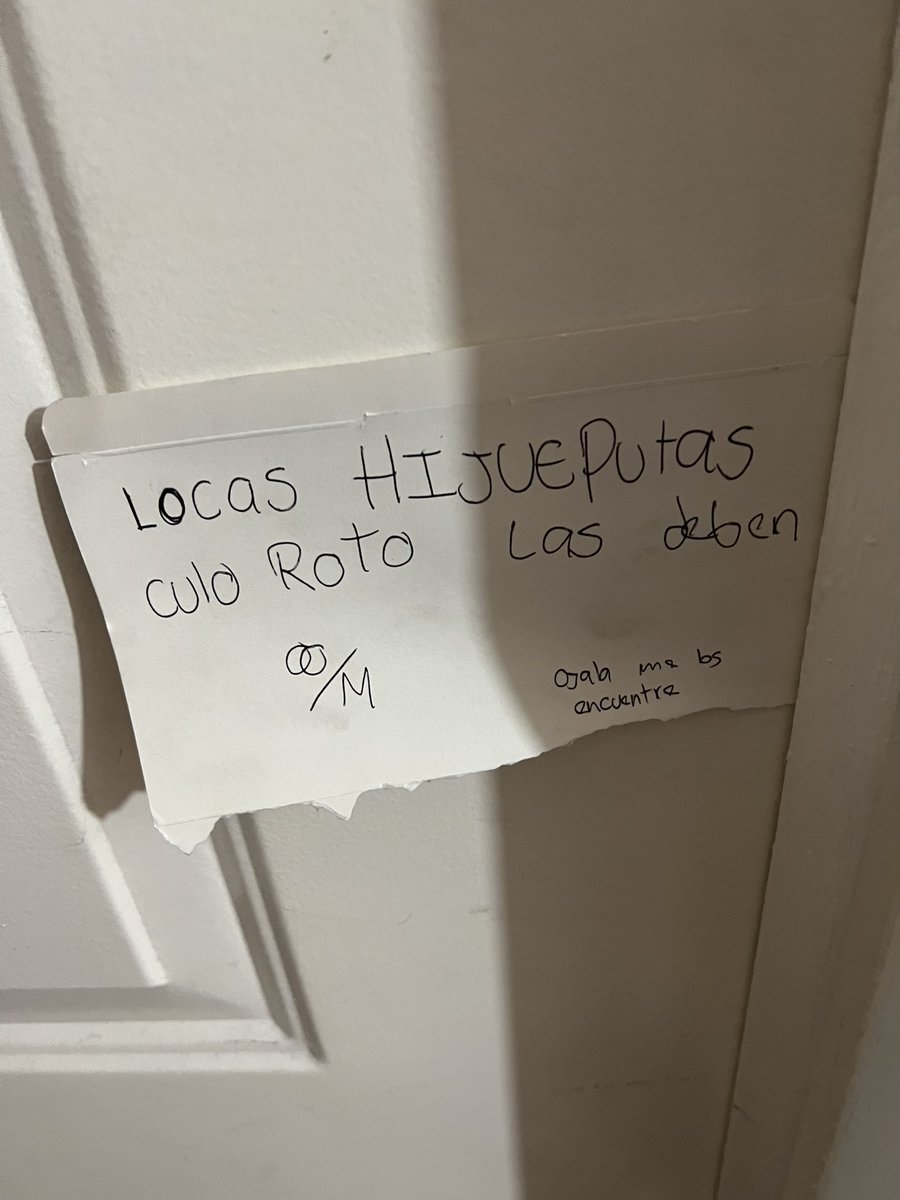 LOCAS HIJUEPutas
culo ROTO Las deben
OO/M
Ojala me los
encuentre